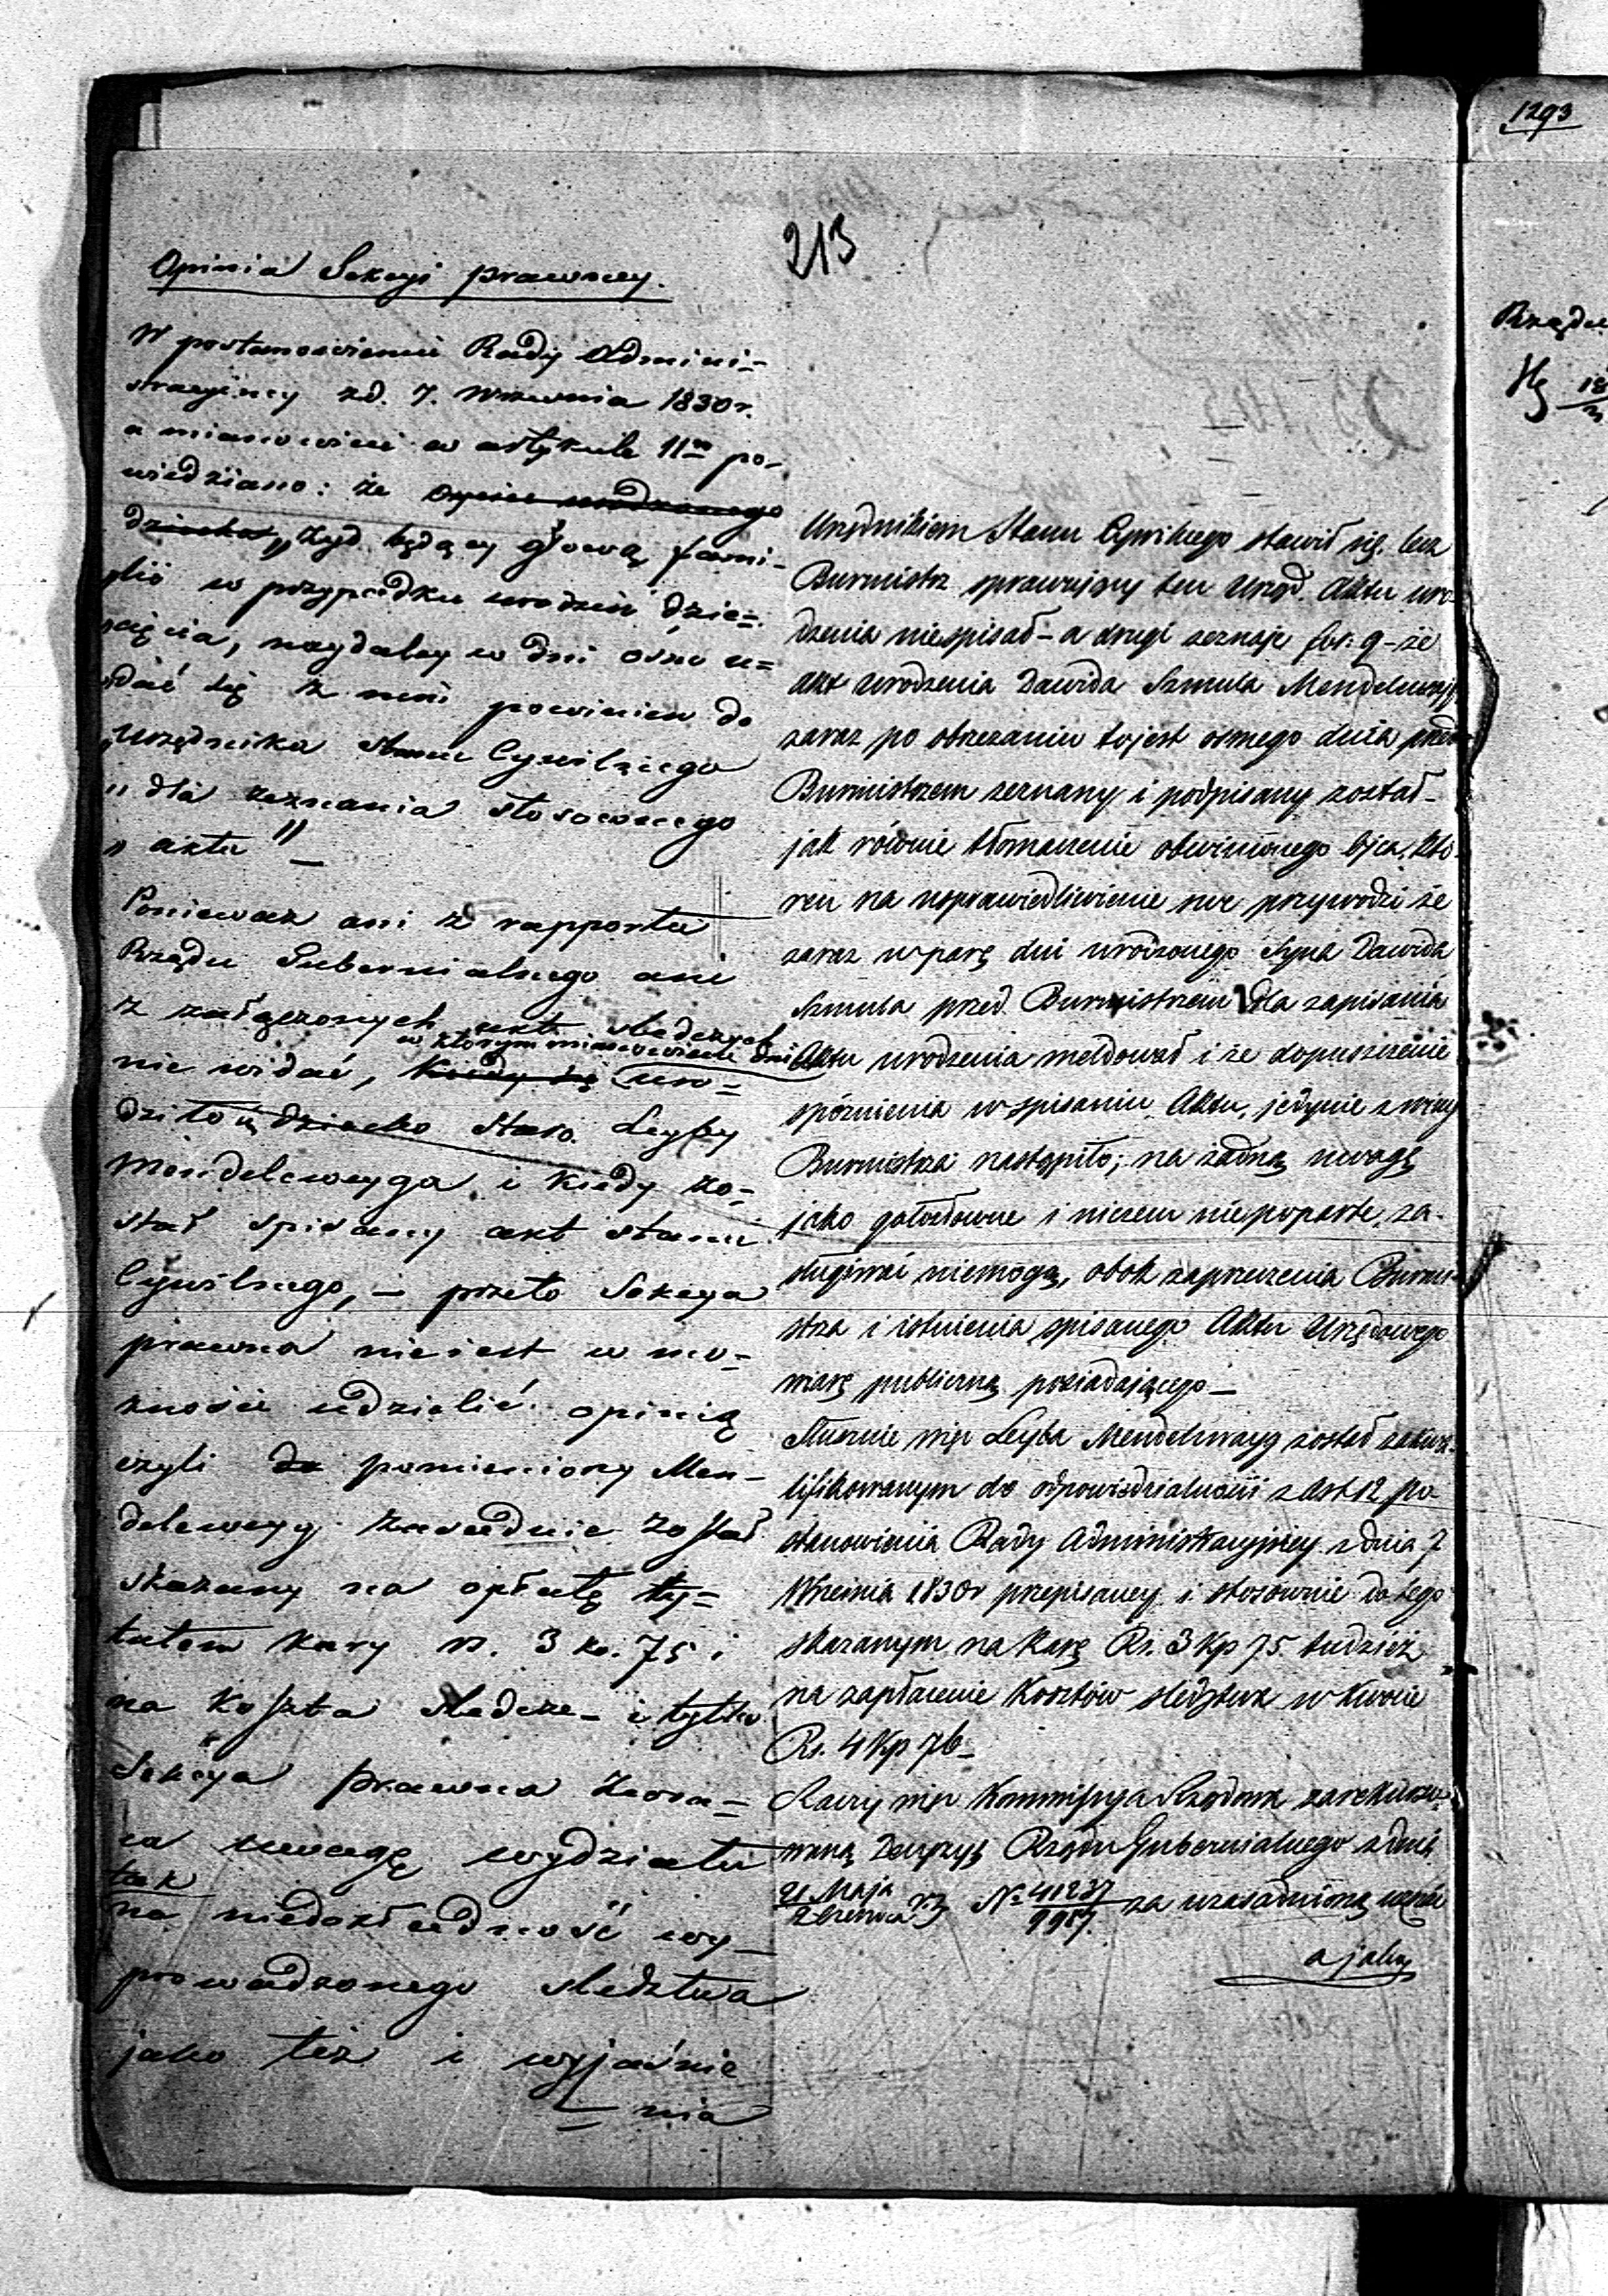 213
Opinia Sekcyi prawney.
W postanowieniu Rady Admini-
stracyiney zd. 7. Września 1830 r.
a mianowicie w artykule 11m po-
wiedziano: że
dziecka „Żyd będący głową fami-
„lii w przypadku urodzin dzie-
„cięcia, naydaley w dni ośm u-
„dać się z nim powinien do
„Urzędnika Stanu Cywilnego
„ dla zeznania stosownego
„ aktu" —
Ponieważ ani z rapportu
Rządu Gubernialnego ani
z załączonych akt śledczych
w którym mianowicie dniu
nie widać, kiedy się uro-
dziło dziecko Staro. Leyby
Mendelcweyga i kiedy zo-
stał spisany akt stanu
Cywilnego, — przeto Sekcya
prawna nie iest w mo-
żności udzielić opinią
czyli pomieniony Men-
delcweyg zasadnie został
skazany na opłatę ty-
tułem kary rs. 3 k. 75 i
na koszta śledcze — i tylko
Sekcya prawna zwra-
ca uwagę wydziału
tak
na niedokładność wy-
prowadzonego śledztwa
jako też i wyjaśnie
nia
Urzędnikiem Stanu Cywilnego stawił się, lecz
Burmistrz sprawujący ten Urząd, Aktu uro-
dzenia niespisał — a drugi zeznaje fol. 9 — że
akt urodzenia Dawida Szmula Mendelwajg
zaraz po obrzezaniu to jest osmego dnia przed
Burmistrzem zeznany i podpisany został —
jak równie tłomaczenie obwinionego Ojca, któ-
ren na usprawiedliwienie swe przywodzi że
zaraz w parę dni urodzonego Syna Dawida
Szmula przed Burmistrzem dla zapisania
Aktu urodzenia meldował i że dopuszczenie
spóźnienia w spisaniu Aktu, jedynie z winy
Burmistrza nastąpiło; na żadną uwagę
jako gołosłowne i niczem niepoparte, za-
sługiwać niemogą, obok zaprzeczenia Burmi-
strza i istnienia spisanego Aktu Urzędowego
wiarę publiczną posiadającego —
Słusznie więc Leyba Mendelwayg został zakwa-
lifikowanym do odpowiedzialności z Art 12 po-
stanowienia Rady Administracyjney z dnia 7
Września 1830 r przepisaney i stosownie do tego
skazanym na karę Rs. 3 Kp 75. tudzież
na zapłacenie Kosztów śledztwa w kwocie
Rs. 4 Kp 76 —
Raczy więc Kommissya Rządowa zarekurso-
waną Decyzyę Rządu Gubernialnego z dnia
21 Maja
2 Czerwca r. z. N° 41237
9987. za uzasadnioną uznać
a jakby
1293
Rządu